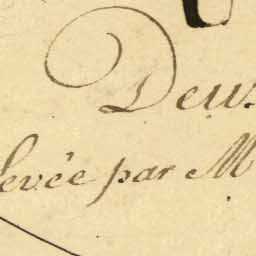 Deux
levée par M